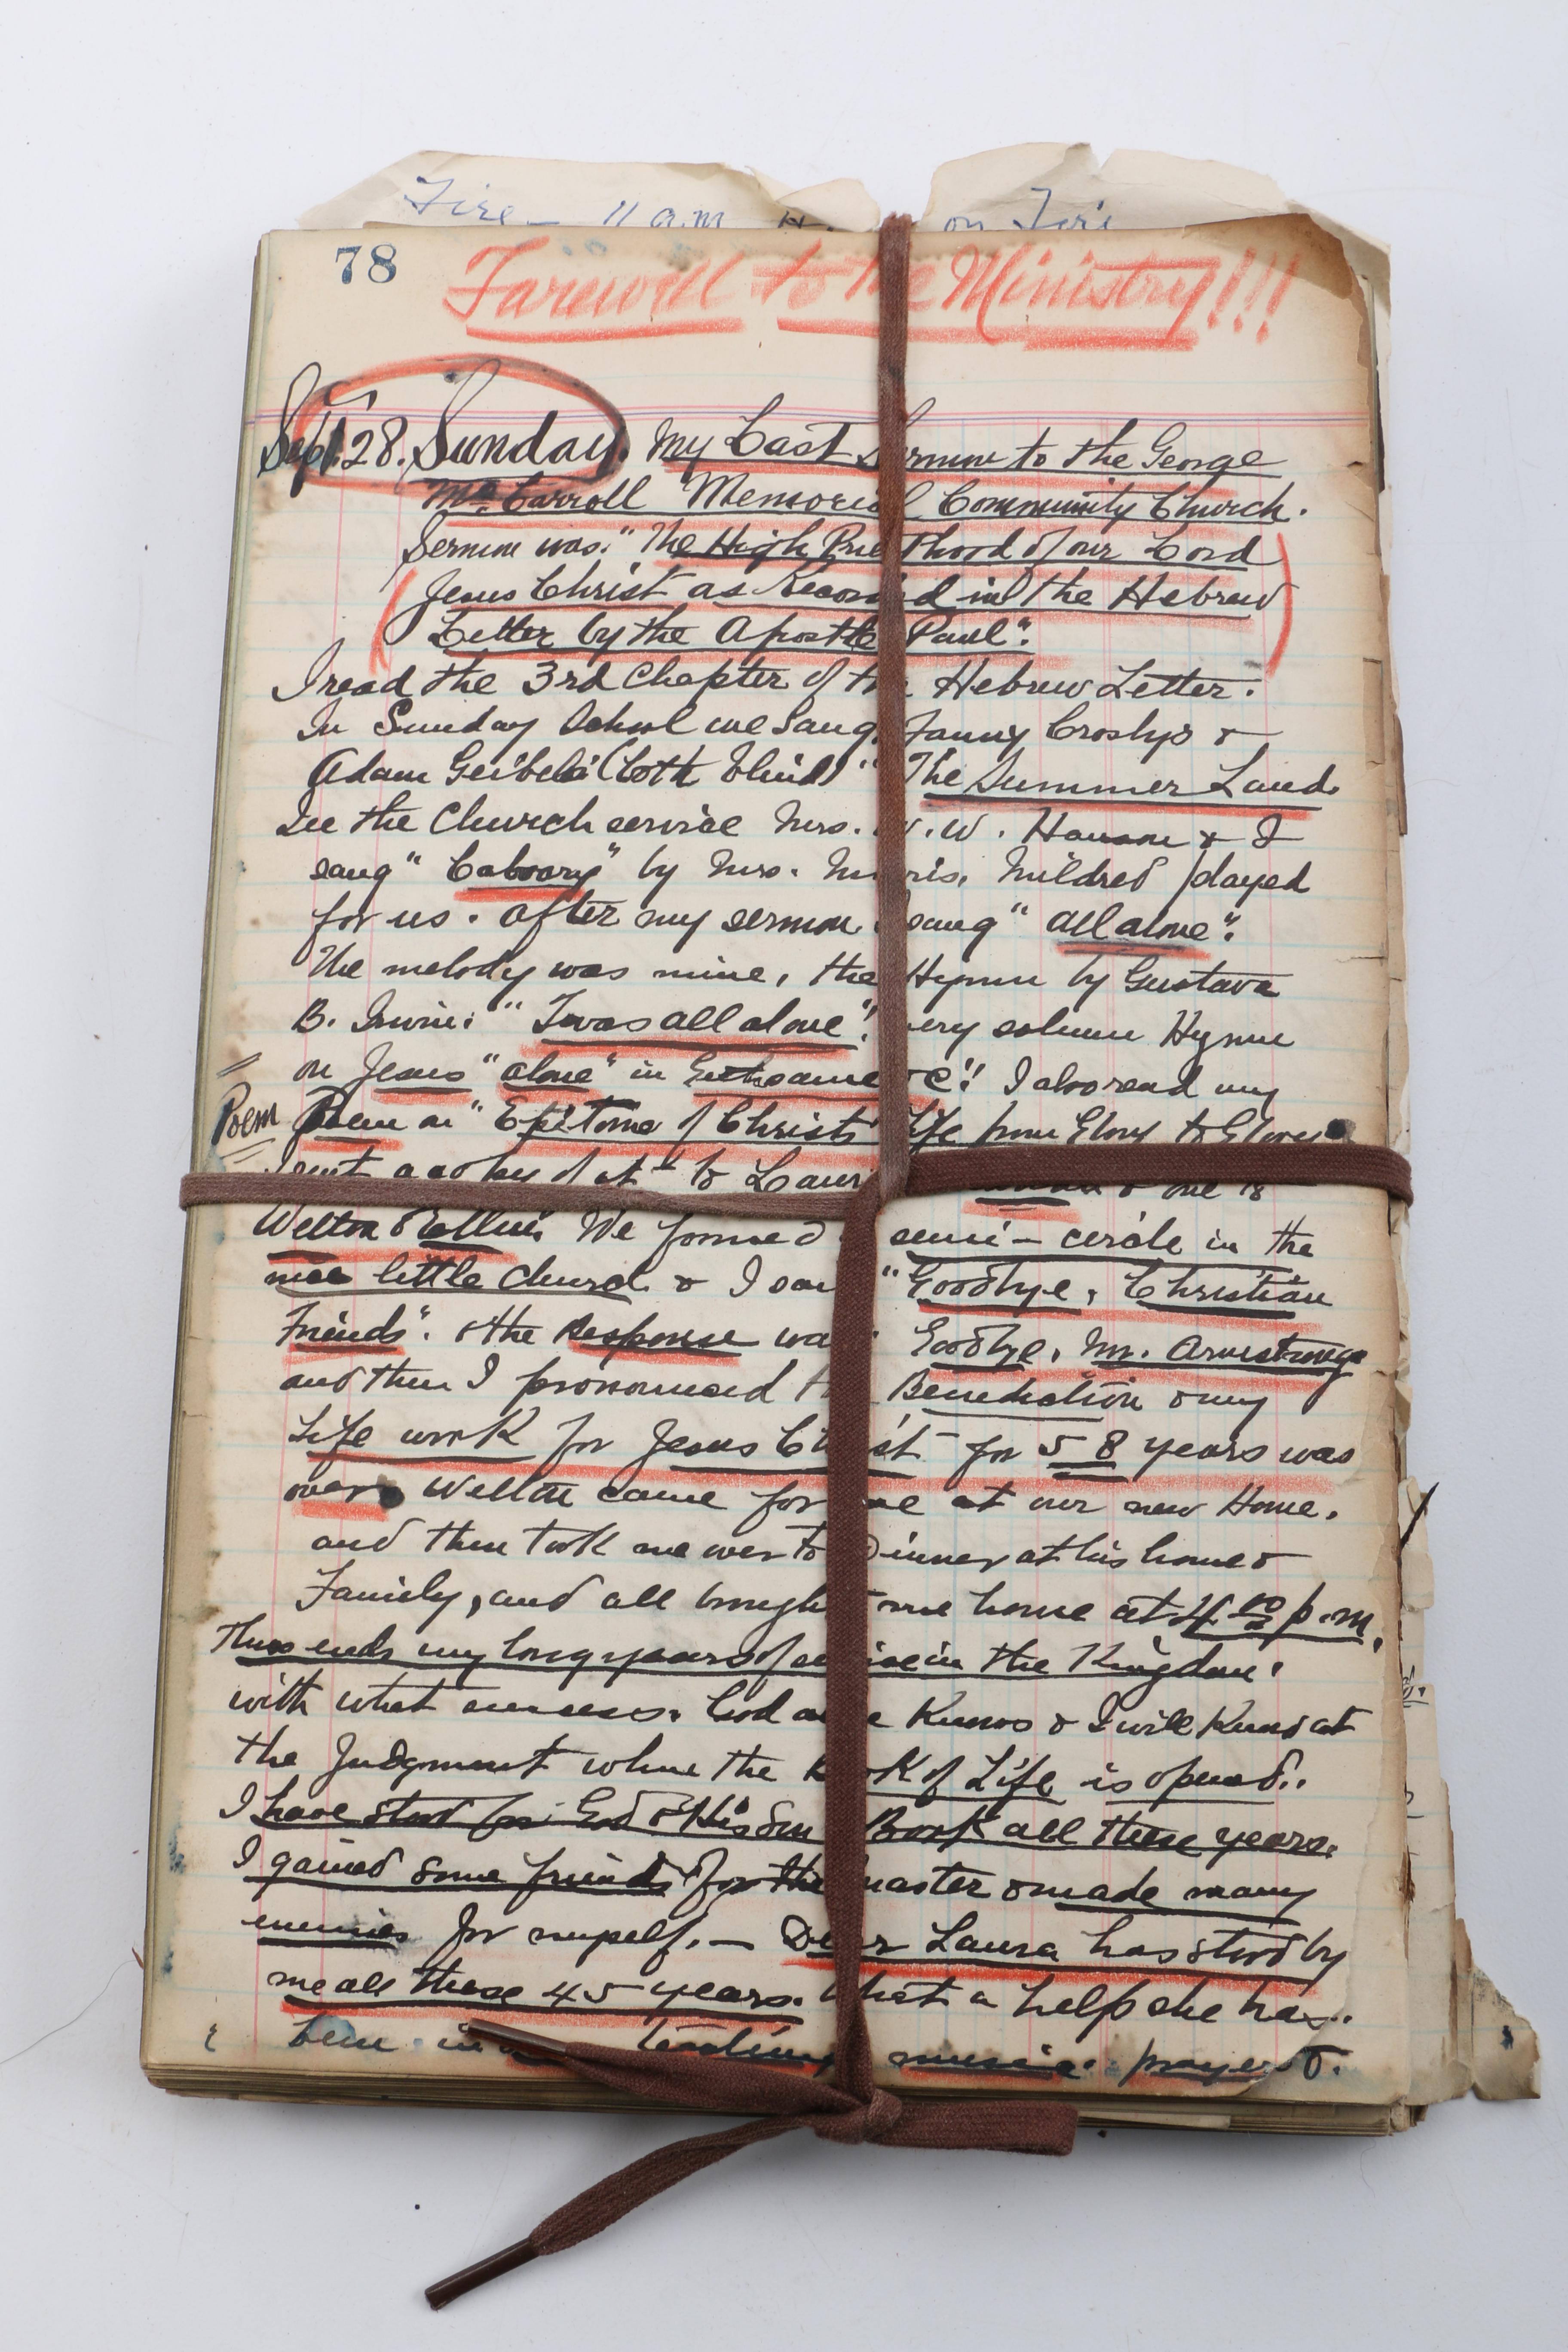 Fire - 11 a.m. on Fire
78
Farewell to the Ministry!!!
Sept. 28. Sunday. My Last Sermon to the George
McCarroll Memorial Community Church.
Sermon was: "The High Priesthood of our Lord
Jesus Christ as Recorded in the Hebrew
Letter by the Apostle Paul".
I read the 3rd Chapter of the Hebrew Letter.
In Sunday School we sang Fanny Crosby's &
Adam Geibel's (both blind) "The Summer Land.
In the Church service Mrs. W. W. Hanson & I
sang "Calvary" by Mrs. Morris. Mildred played
for us. After my sermon I sang "all alone".
The melody was mine, the Hymn by Gustava
B. "I was all alone"! very solemn Hymn
on Jesus "alone" in Gethsemane! I also read my
Poem Poem on "Epitome of Christ's Life from Glory to Glory
I sent a copy of it to & one to
Welton & We formed a semi-circle in the
nice little church & I said "Goodbye, Christian
Friends". & the Response was "Goodbye, Mr. Armstrong
and then I pronounced the Benediction & my
Life work for Jesus Christ for 58 years was
over. Welton came for me at our new Home.
and then took me over to Dinner at his home &
Family, and all brought me home at 4:00 p.m.
Thus ends my long years of service in the Kingdom!
with what success. God alone Knows & I will Know at
the Judgment when the Book of Life is opened..
I have stood for God & His Son & Book all these years.
I gained some friends for the master & made many
enemies for myself. — Dear Laura has stood by
me all these 45 years. What a help she has
been in teaching music prayer &